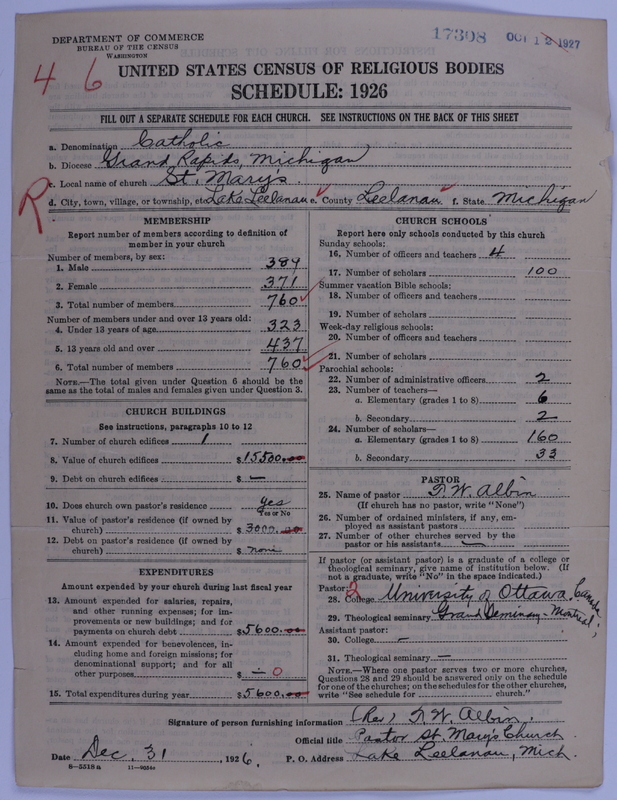 17308 OCT 12 1927
DEPARTMENT OF COMMERCE
BUREAU OF THE CENSUS
WASHINGTON
4 6
UNITED STATES CENSUS OF RELIGIOUS BODIES
SCHEDULE: 1926
FILL OUT A SEPARATE SCHEDULE FOR EACH CHURCH. SEE INSTRUCTIONS ON THE BACK OF THIS SHEET
a. Denomination Catholic
b. Diocese Grand Rapids, Michigan
c. Local name of church St. Mary's
R
d. City, town, village, or township, etc. Lake Leelanau e. County Leelanau. f. State Michigan
MEMBERSHIP
Report number of members according to definition of
member in your church
Number of members, by sex:
1. Male 389
2. Female 371
3. Total number of members 760
Number of members under and over 13 years old:
4. Under 13 years of age 323
5. 13 years old and over 437
6. Total number of members 760
NOTE.—The total given under Question 6 should be the
same as the total of males and females given under Question 3.
CHURCH BUILDINGS
See instructions, paragraphs 10 to 12
7. Number of church edifices 1
8. Value of church edifices $15500.00
9. Debt on church edifices $ —
10. Does church own pastor's residence yes
Yes or No
11. Value of pastor's residence (if owned by
church) $3000.00
12. Debt on pastor's residence (if owned by
church) $ none
EXPENDITURES
Amount expended by your church during last fiscal year
13. Amount expended for salaries, repairs,
and other running expenses; for im-
provements or new buildings; and for
payments on church debt $5600.00
14. Amount expended for benevolences, in-
cluding home and foreign missions; for
denominational support; and for all
other purposes $ — 0
15. Total expenditures during year $5600.00
CHURCH SCHOOLS
Report here only schools conducted by this church
Sunday schools:
16. Number of officers and teachers 4
17. Number of scholars 100
Summer vacation Bible schools:
18. Number of officers and teachers
19. Number of scholars
Week-day religious schools:
20. Number of officers and teachers
21. Number of scholars
Parochial schools:
22. Number of administrative officers 2
23. Number of teachers—
a. Elementary (grades 1 to 8) 6
b. Secondary 2
24. Number of scholars—
a. Elementary (grades 1 to 8) 160
b. Secondary 33
PASTOR
25. Name of pastor F. W. Albin
(If church has no pastor, write "None")
26. Number of ordained ministers, if any, em-
ployed as assistant pastors
27. Number of other churches served by the
pastor or his assistants —
If pastor (or assistant pastor) is a graduate of a college or
theological seminary, give name of institution below. (If
not a graduate, write "No" in the space indicated.)
Pastor: 2
28. College University of Ottawa, Canada
29. Theological seminary Grand Seminary - Montreal,
Assistant pastor:
30. College —
31. Theological seminary —
NOTE.—Where one pastor serves two or more churches,
Questions 28 and 29 should be answered only on the schedule
for one of the churches; on the schedules for the other churches,
write "See schedule for church."
Signature of person furnishing information (Rev) F. W. Albin.
Official title Pastor St. Mary's Church
Date Dec. 31, 1926. P. O. Address Lake Leelanau, Mich.
8—5518 a 11—9054